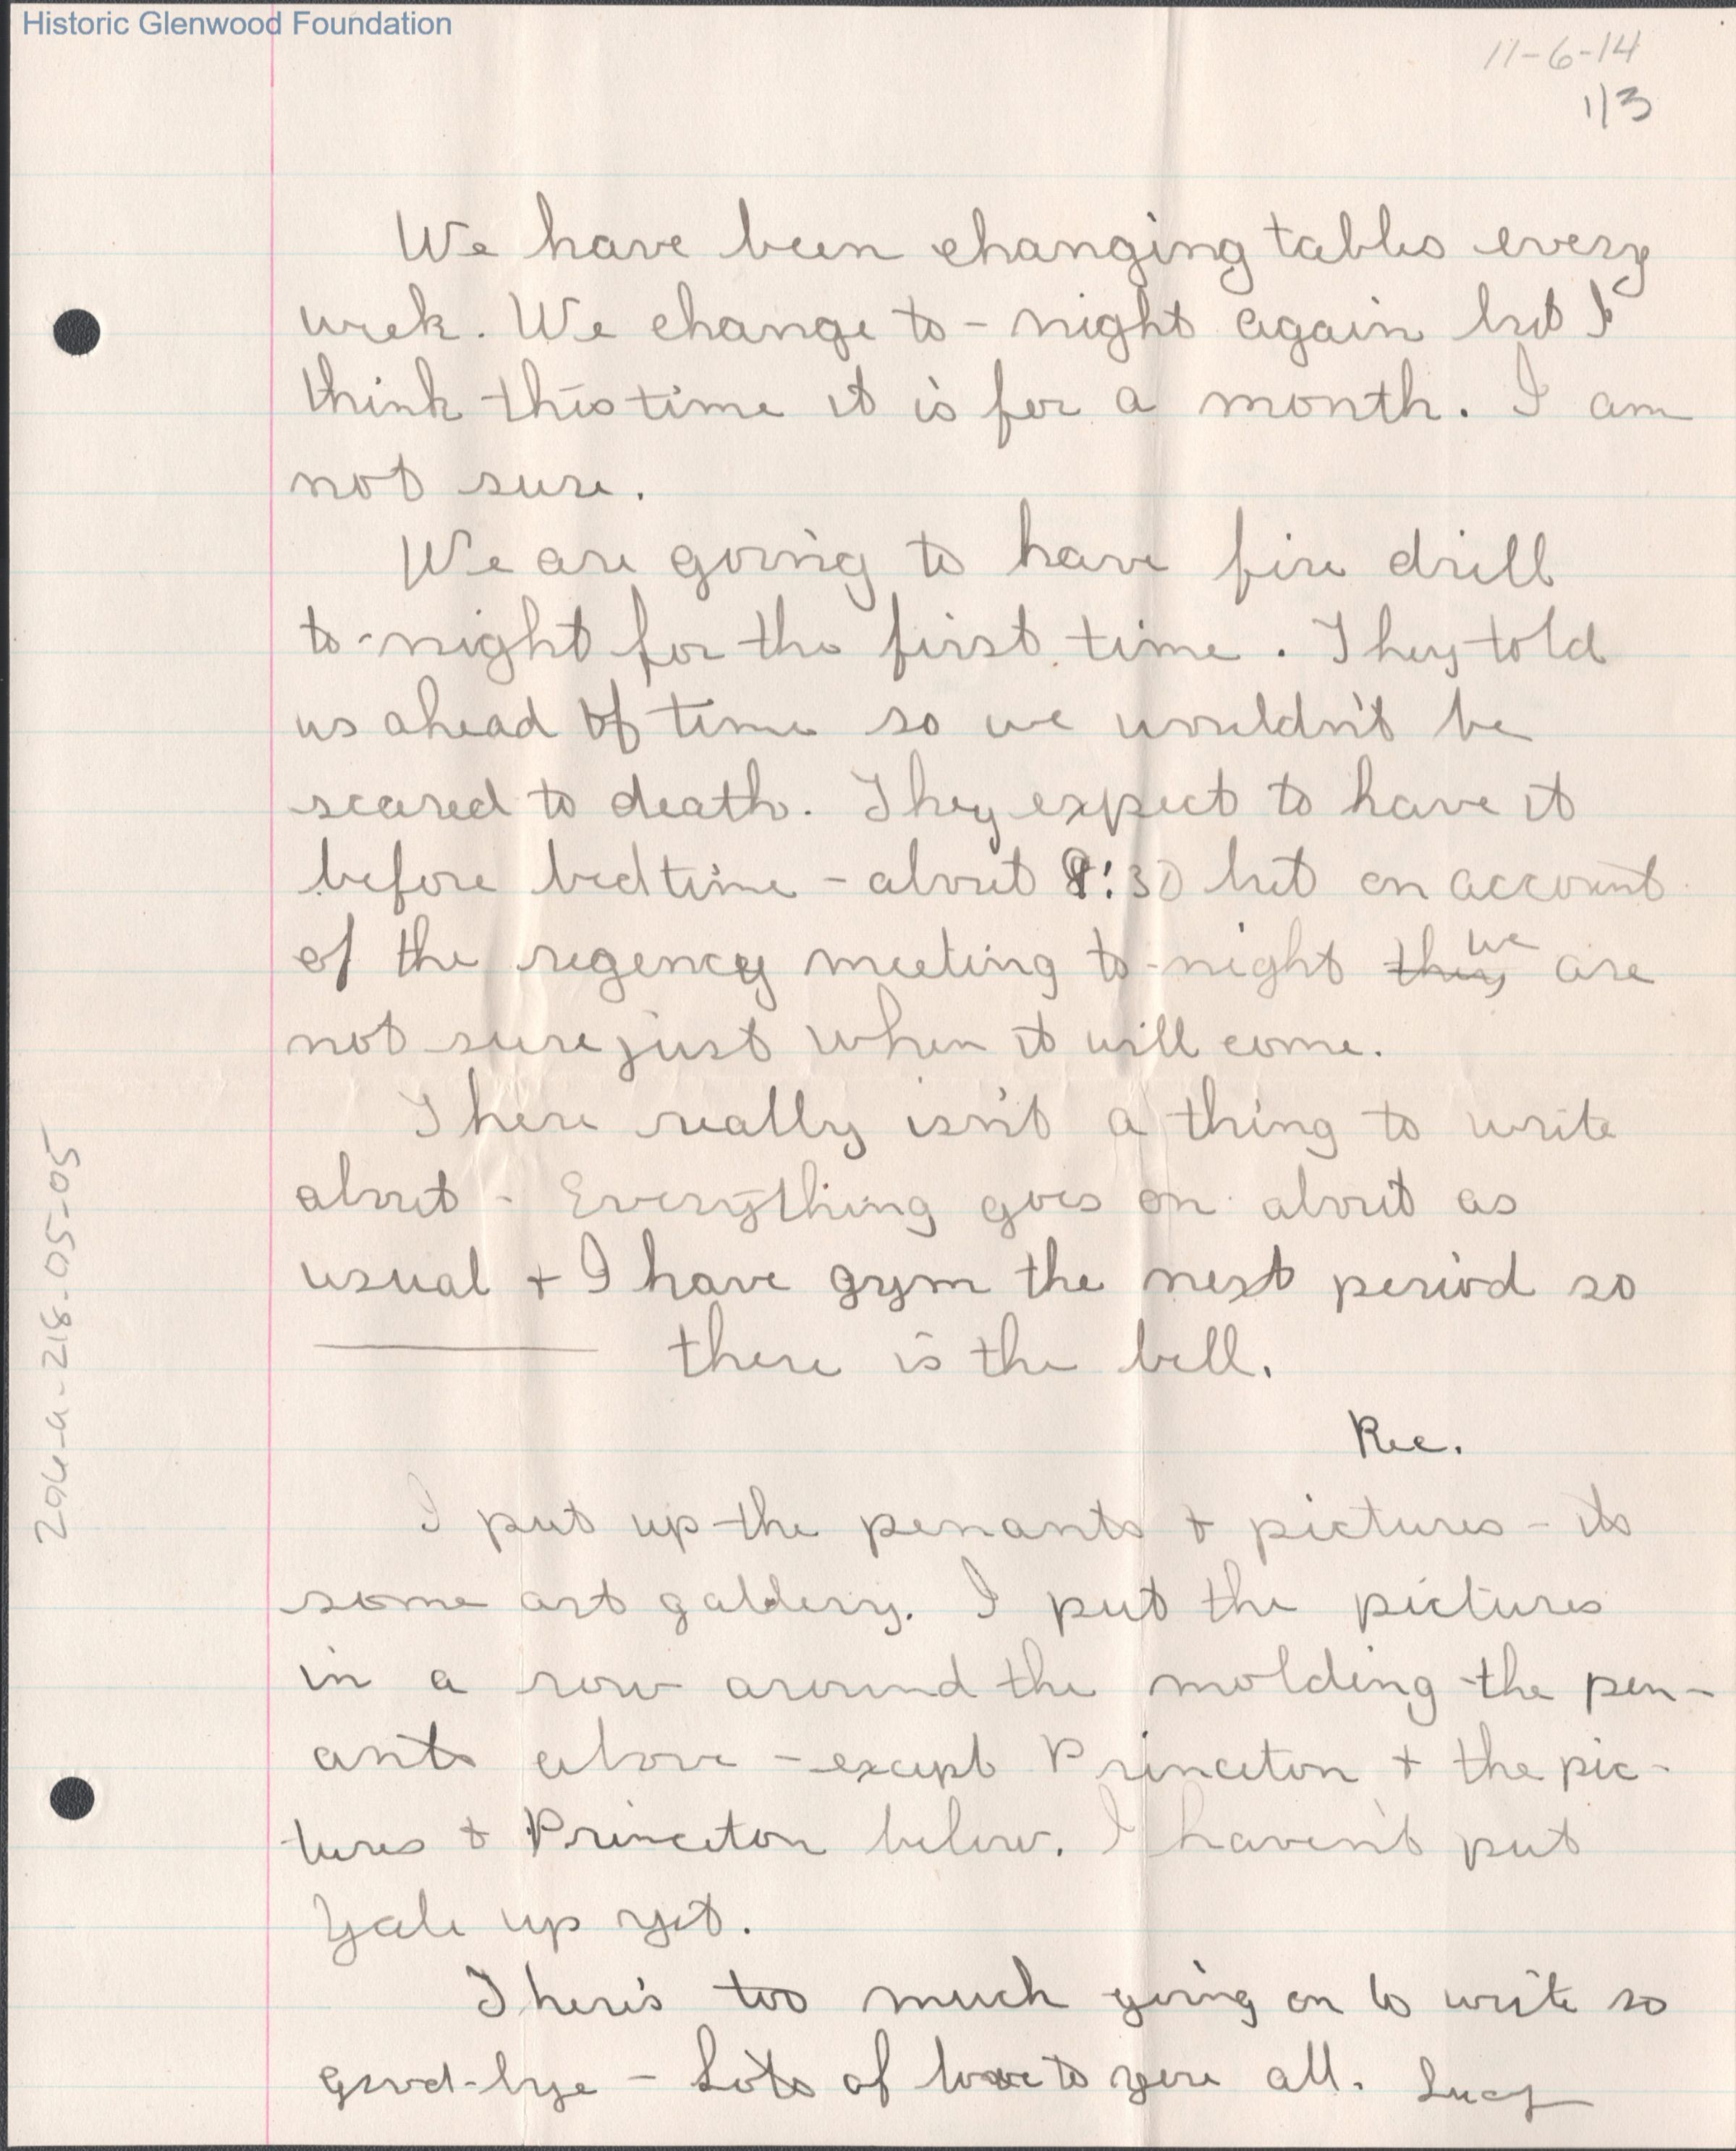 Historic Glenwood Foundation
11-6-14
1/3
We have been changing tables every
week. We change to-night again but I
think this time it is for a month. I am
not sure.
We are going to have fire drill
to-night for the first time. They told
us ahead of time so we wouldn't be
scared to death. They expect to have it
before bedtime - about 9:30 but on account
of the regency meeting to-night they we are
not sure just when it will come.
There really isn't a thing to write
about - Everything goes on about as
usual + I have gym the next period so
there is the bell.
Rec.
I put up the penants + pictures - its
some art gallery. I put the pictures
in a row around the molding the pen-
ants above - except Princeton + the pic-
tures + Princeton below. I haven't put
Yale up yet.
There's too much going on to write so
good-bye - Lots of love to you all. Lucy
2014-a-218-05-05